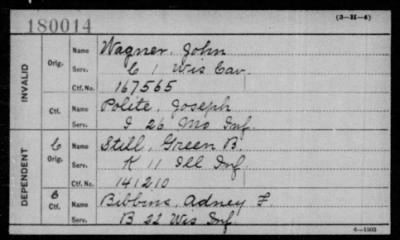 180014
(3-H-6)
INVALID
Orig.
Name Wagner, John
Serv. C 1 Wis Cav.
Ctf. No. 167565
Ctf.
Name Polite, Joseph
Serv. I 26 Mo Inf.
DEPENDENT
C
Orig.
Name Still, Green B.
Serv. K 11 Ill Inf
Ctf. No. 141210
Ctf.
Name Bibbins, Adney F.
Serv. B 22 Wis Inf
6-1503